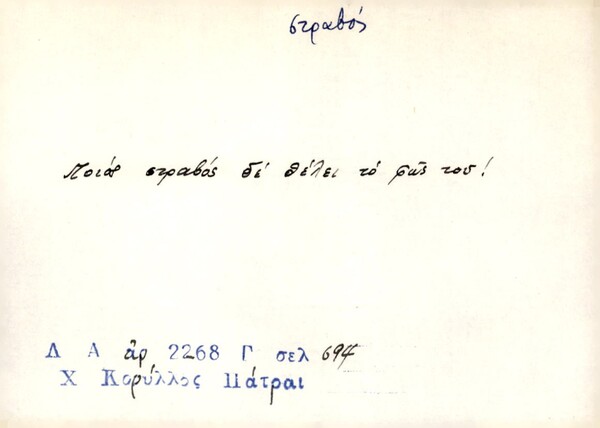 στραβός
Ποιός στραβός δέ θέλει τό φῶς του!
Λ Α ἀρ 2268 Γ σελ 694
Χ Κορύλλος Πάτραι